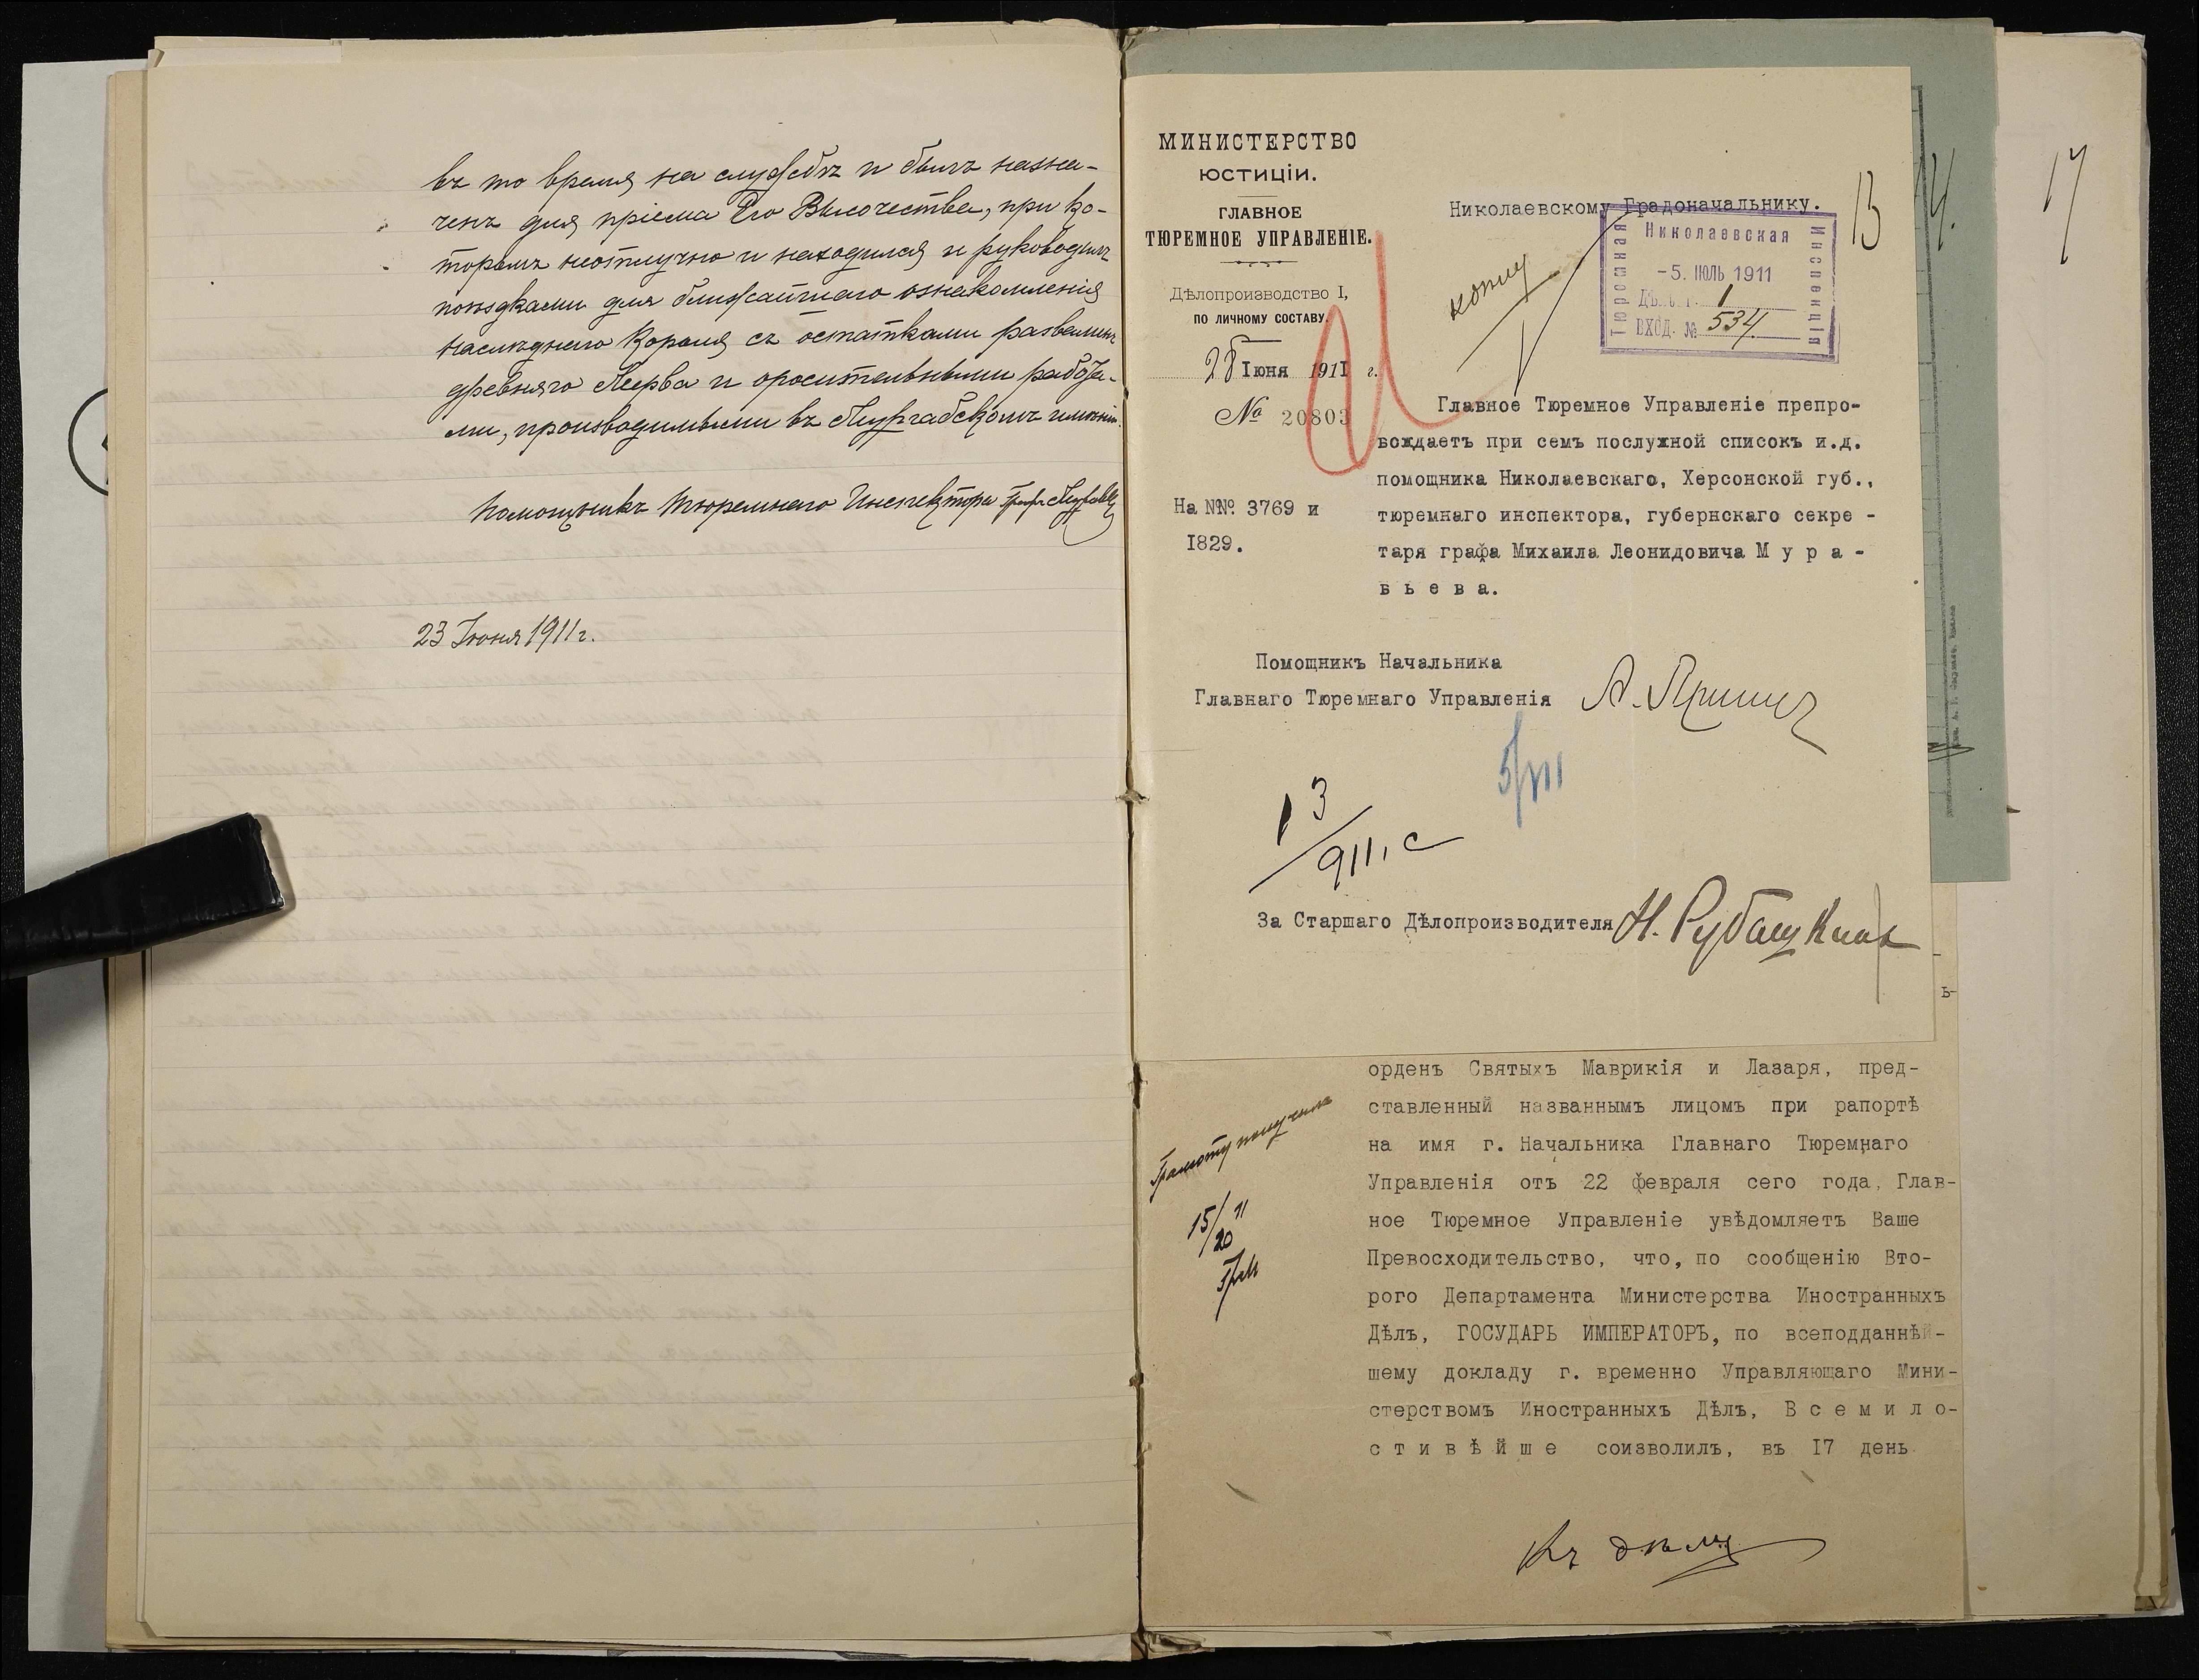 въ то время на службѣ и былъ назна-
ченъ для пріема Его Высочества, при ко-
торомъ неотлучно и находился и руководилъ
поѣздками для ближайшаго ознакомленія
наслѣднаго Короля съ остатками развалинъ
древняго Мерва и оросительными работа-
ми, производимыми въ Мургабскомъ имѣніи.
Помощникъ Тюремнаго Инспектора Графъ Муравьевъ
23 Іюня 1911 г.
МИНИСТЕРСТВО
ЮСТИЦІИ.
ГЛАВНОЕ
ТЮРЕМНОЕ УПРАВЛЕНІЕ.
Дѣлопроизводство I,
ПО ЛИЧНОМУ СОСТАВУ.
28 Іюня 1911 г.
№ 20803
На №№ 3769 и
1829.
Николаевскому Градоначальнику.
13
14.
17
копію
Николаевская
Тюремная
Инспекція
-5. ІЮЛЬ 1911
1
ВХОД. № 534
Главное Тюремное Управленіе препро-
вождаетъ при семъ послужной списокъ и.д.
помощника Николаевскаго, Херсонской губ.,
тюремнаго инспектора, губернскаго секре -
таря графа Михаила Леонидовича М у р а -
в ь е в а.
Помощникъ Начальника
Главнаго Тюремнаго Управленія
5/VII
13/911. с
За Старшаго Дѣлопроизводителя Н. Рубашкинъ
ь-
орденъ Святыхъ Маврикія и Лазаря, пред-
ставленный названнымъ лицомъ при рапортѣ
на имя г. Начальника Главнаго Тюремнаго
Управленія отъ 22 февраля сего года, Глав-
ное Тюремное Управленіе увѣдомляетъ Ваше
Превосходительство, что, по сообщенію Вто-
рого Департамента Министерства Иностранныхъ
Дѣлъ, ГОСУДАРЬ ИМПЕРАТОРЪ, по всеподданнѣй-
шему докладу г. временно Управляющаго Мини-
стерствомъ Иностранныхъ Дѣлъ, В с е м и л о-
с т и в ѣ й ш е соизволилъ, въ 17 день
Грамоту получилъ
15/20 11
Къ дѣлу